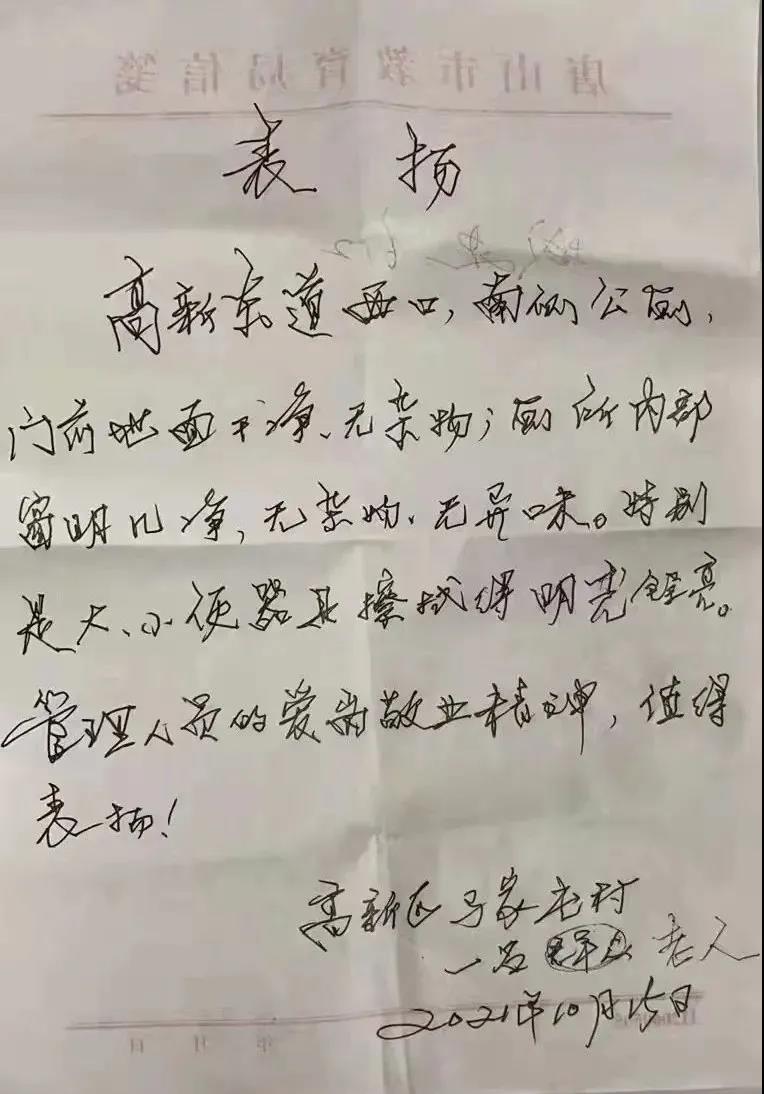 唐山市教育局信笺
表扬
高新东道西口，南侧公厕，
门前地面干净、无杂物；厕所内部
窗明几净，无杂物、无异味。特别
是大、小便器具擦拭得明亮锃亮。
管理人员的爱岗敬业精神，值得
表扬！
高新区马家屯村
一名 老人
2021年10月15日
年 月 日